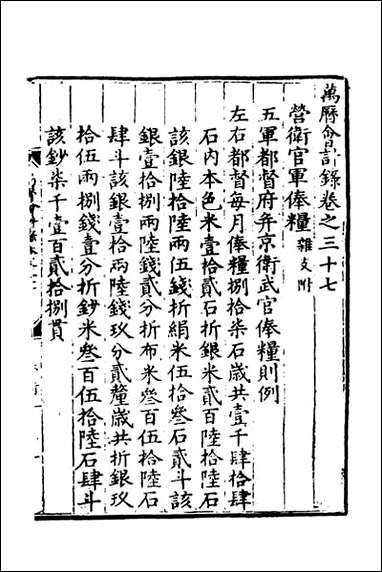 萬曆會計錄卷之三十七
營衛官軍俸糧 雜支附
五軍都督府并京衛武官俸糧則例
左右都督每月俸糧捌拾柒石歳共壹千肆拾肆
石内本色米壹拾貳石折銀米貳百陸拾陸石
該銀陸拾陸兩伍錢折絹米伍拾叁石貳斗該
銀壹拾捌兩陸錢貳分折布米叁百伍拾陸石
肆斗該銀壹拾兩陸錢玖分貳釐歳共折銀玖
拾伍兩捌錢壹分折鈔米叁百伍拾陸石肆斗
該鈔柒千壹百貳拾捌貫